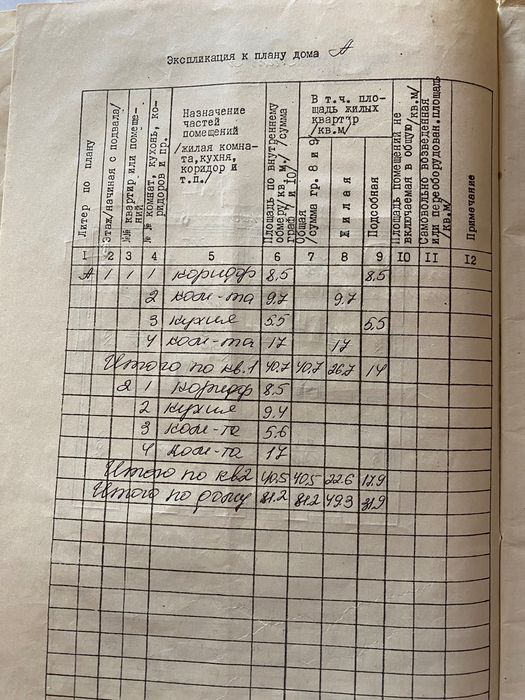 Экспликация к плану дома А
Литер по плану
Этаж/начиная с подвала/
№№ квартир или помещений
№№ комнат, кухонь, коридоров и т.п.
Назначение
частей
помещений
/жилая комна-
та,кухня,
коридор и
т.п./
Площадь по внутреннему
обмеру/кв.м./ /сумма
граф 7 и 10/
В т.ч. пло-
щадь жилых
квартир
/кв.м/
Общая
/сумма гр. 8 и 9/
Жилая
Подсобная
Площадь помещений не
включаемая в общую/кв.м/
Самовольно возведенная
или переоборудован.площадь
/кв.м/
Примечание
1 2 3 4 5 6 7 8 9 10 11 12
А 1 1 1 коридор 8,5 8,5
2 ком-та 9,7 9,7
3 кухня 5,5 5,5
4 ком-та 17 17
Итого по кв.1 40,7 40,7 26,7 14
2 1 коридор 8,5
2 кухня 9,4
3 ком-та 5,6
4 ком-та 17
Итого по кв2 40,5 40,5 22,6 17,9
Итого по дому 81,2 81,2 49,3 31,9